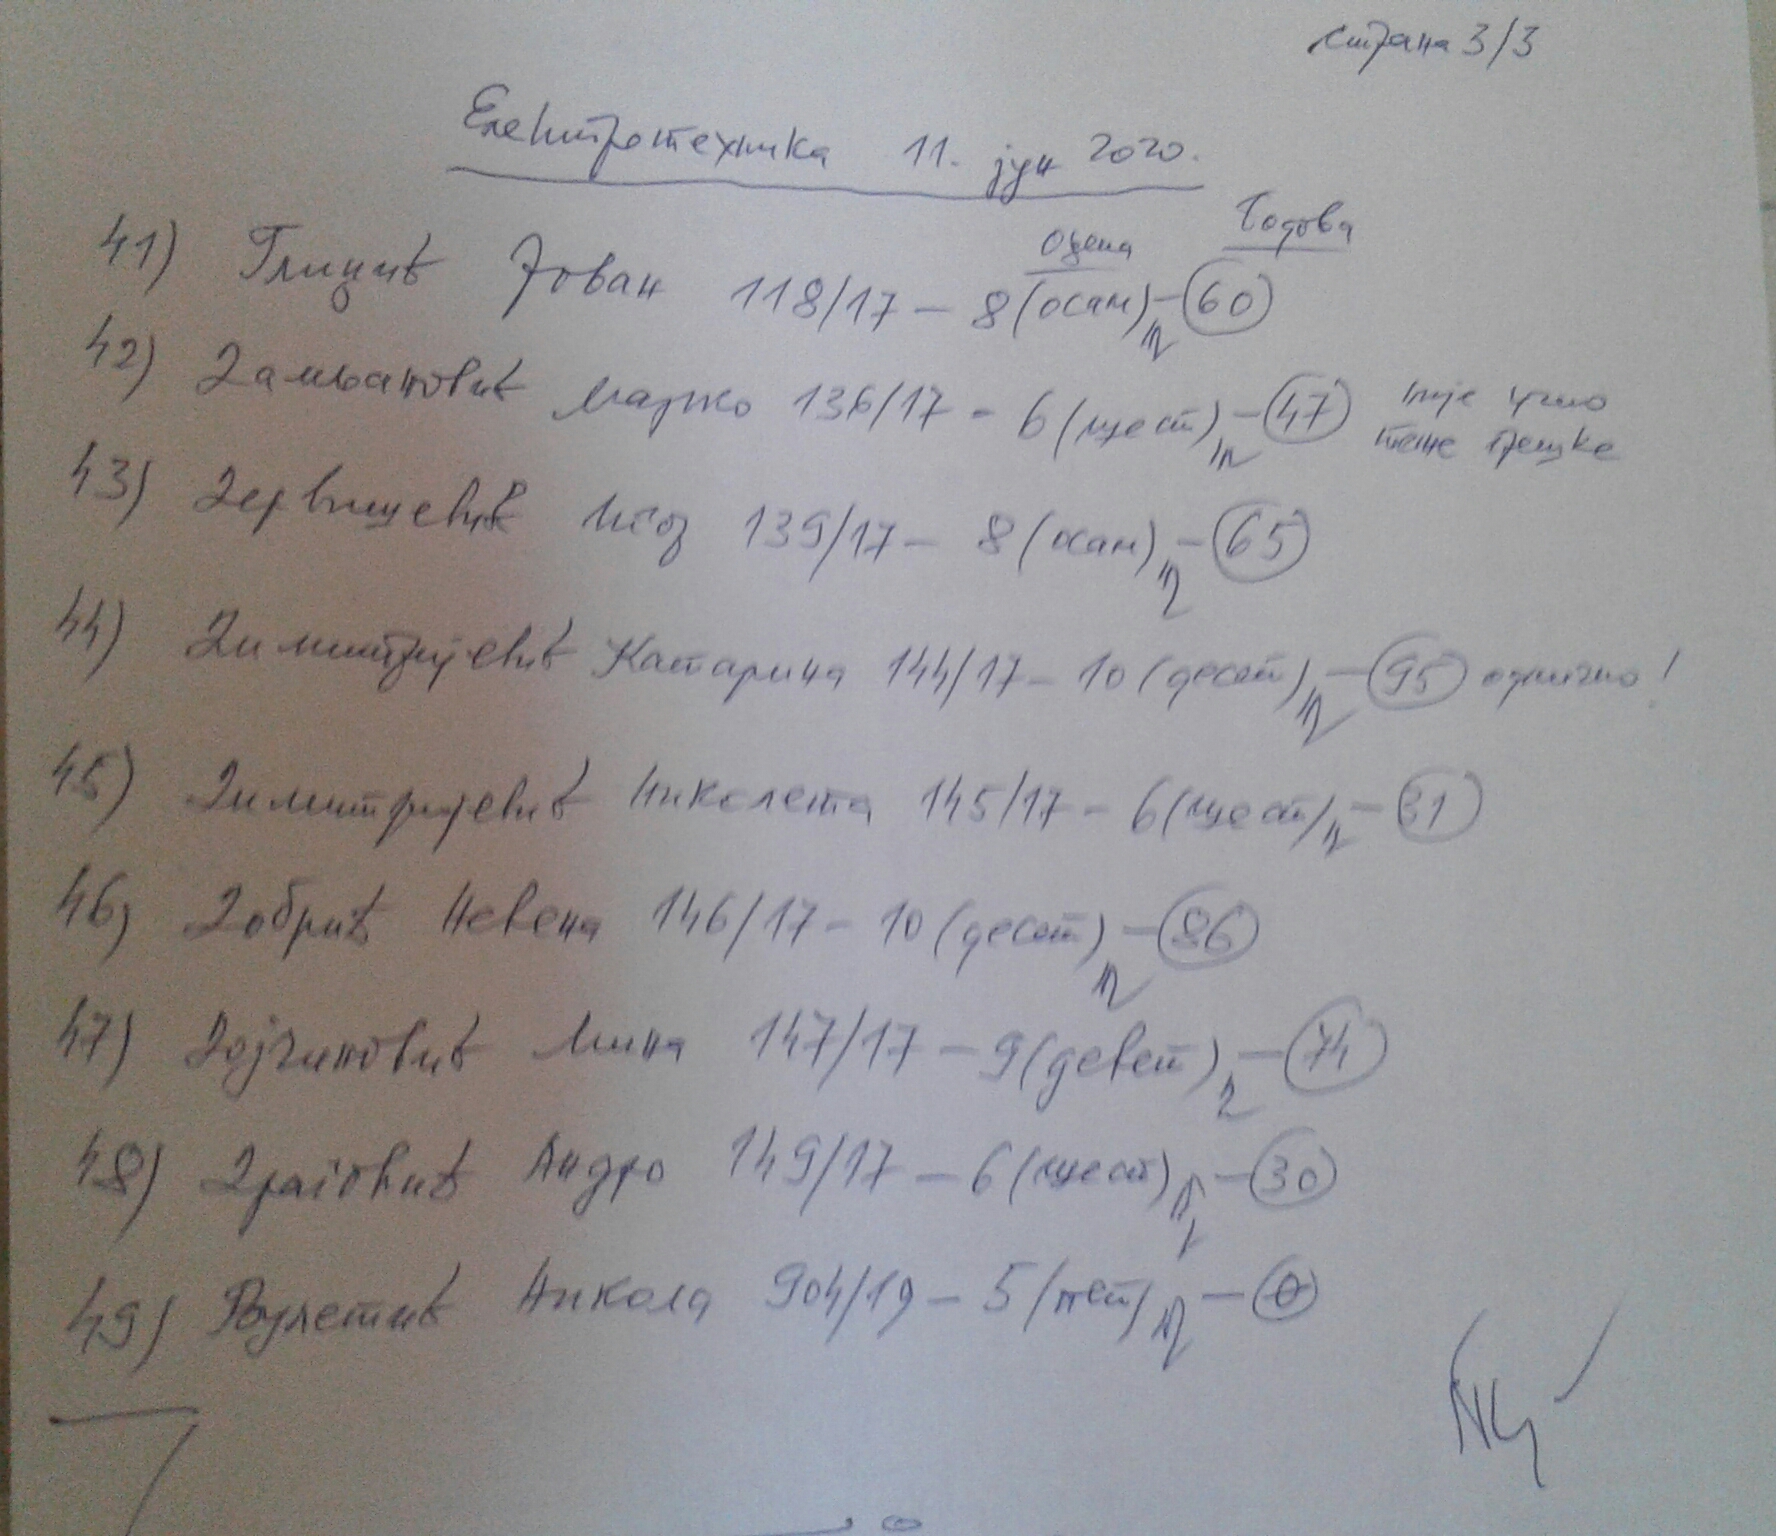 страна 3/3
Електротехника 11. јун 2020.
оцена бодова
41) Глишић Јован 118/17 – 8 (осам) – 60
42) Дамњановић Марко 136/17 – 6 (шест) – 47 није учио
теже грешке
43) Дервишевић 139/17 – 8 (осам) – 65
44) Димитријевић Катарина 144/17 – 10 (десет) – 95 одлично!
45) Димитријевић Николета 145/17 – 6 (шест) – 31
46) Добрић Невена 146/17 – 10 (десет) – 86
47) Дојчиновић Мина 147/17 – 9 (девет) – 74
48) Драговић Андро 149/17 – 6 (шест) – 30
49) Никола 904/19 – 5 (пет) – 0